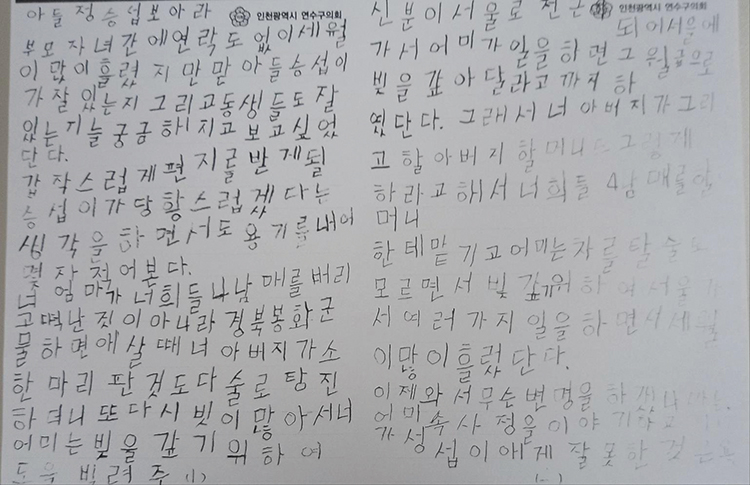 아들 정승섭 보아라
인천광역시 연수구의회
부모 자녀간에 연락도 없이 세월
이 많이 흘렀지만 맏아들 승섭이
가 잘 있는지 그리고 동생들도 잘
있는지늘 궁금해지고 보고싶었
단다.
갑작스럽게 편지를 받게될
승섭이가 당황스럽겠다는
생각을 하면서도 용기를 내어
몇 자 적어본다.
너 엄마가 너희들 4남매를 버리
고 떠난 것이 아니라 경북 봉화군
물 하면에 살때 너 아버지가 소
한 마리 판 것도 다 술로 탕진
하더니 또다시 빗이 많아서 너
어미는 빚을 갚기 위하여
도움 빌려주
(1)
인천광역시 연수구의회
신분이 서울로 전근 되어 서울에
가서 어미가 일을 하면 그 월급으로
빚을 갚아 달라고 까지 하
였단다. 그래서 너 아버지가 그리
고 할아버지 할머니도 그렇게
하라고 해서 너희들 4남매를 할
머니
한테 맡기고 어미는 차를 탈 술도
모르면서 빚 갚귀위하여 서울
서 여러가지 일을 하면서 세월
이 많이 흘렀단다.
이제와서 무슨 변명을 하겠냐
어미 속사정을 이야기하고
가성섭이에게 잘못한 것